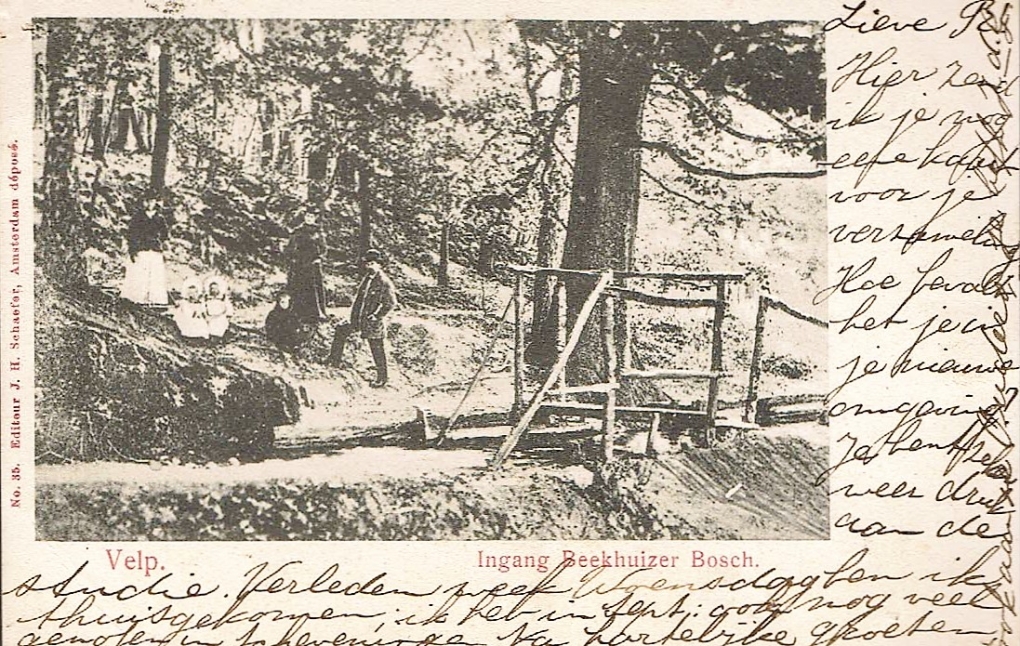 Lieve
Hier zend
ik je nog
eene kaart
voor je
verzameling
Hoe bevalt
het je in
je nieuwe
omgeving
Je bent zeker
weer druk
aan de
studie. Verleden week Woensdag ben ik
thuisgekomen, ik heb in Sept. ook nog veel
genoten in Scheveningen. Na hartelijke groeten,
Velp.
Ingang Beekhuizer Bosch.
No. 35. Editeur J. H. Schaefer, Amsterdam déposé.